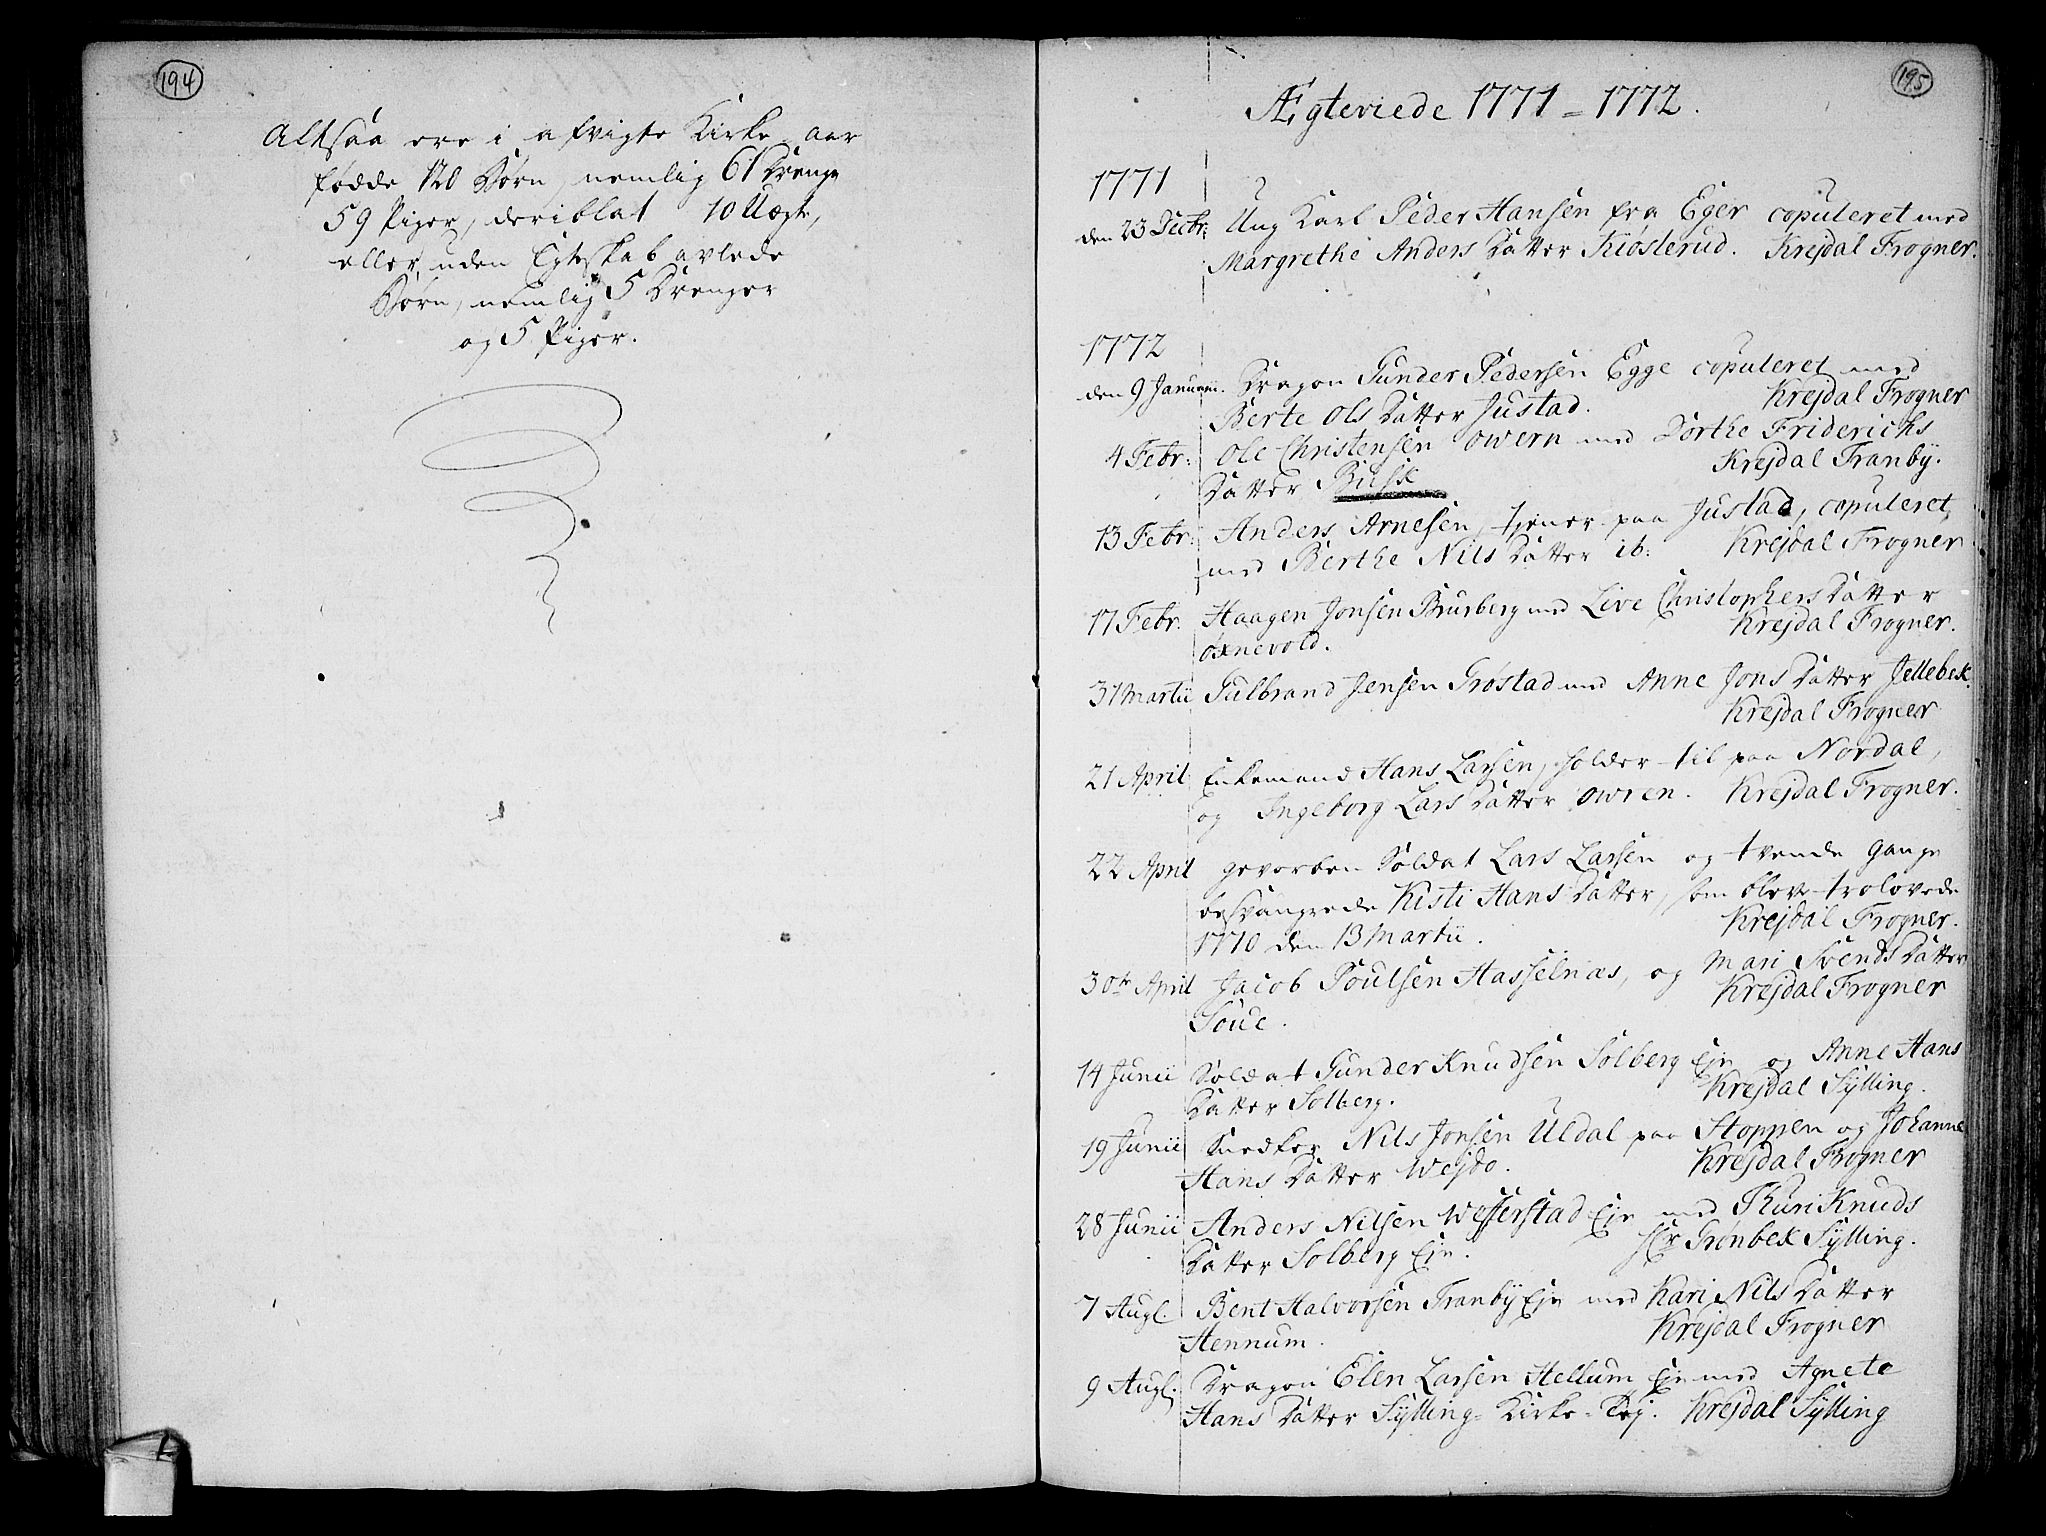 194
Altsaa ere i afvigte Kirke-aar
fødde 120 Børn, nemlig 61 Drenge
59 Piger, deriblat 10 Uægte,
eller uden Egteskab avlede
Børn, nemlig 5 Drenger
og 5 Piger.
195
Ægteviede 1771 = 1772.
1771
den 23 Decbr: Ung Karl Peder Hansen fra Eger copuleret med
Margrethe Anders Datter Kiøsterud. Krejdal Frogner.
1772
den 9 Januarii. Dragon Gunder Pedersen Egge copuleret med
Berte Ols Datter Justad. Krejdal Frogner
4 Febr: Ole Christensen Owern med Dorthe Friderichs
Datter Busk Krejdal Tranby.
13 Febr: Anders Arnesen, tjener paa Justad, copuleret
med Berthe Nils Datter ib: Krejdal Frogner
17 Febr. Haagen Jonsen Brusberg med Live Christophers Datter
Oxnevold. Krejdal Frogner.
31 Martii Gulbrand Jensen Grøstad med Anne Jons Datter Jellebek.
Krejdal Frogner
21 April Enkemand Hans Larsen, holder til paa Nordal,
og Ingeborg Lars Datter Owren. Krejdal Frogner.
22 April gevorben Soldat Lars Larsen og tvende gange
besvangrede Kisti Hans Datter, som bleve trolovede
1770 den 13 Martii. Krejdal Frogner.
30te April Jacob Poulsen Hasselnæs, og Mari Svends Datter
Soue. Krejdal Frogner
14 Junii Soldat Gunder Knudsen Solberg Eje og Anne Hans
Datter Solberg. Krejdal Sylling.
19 Junii Snedker Nils Jonsen Uldal paa Stoppen og Johanne
Hans Datter Wejdo. Krejdal Frogner
28 Junii Anders Nilsen Wefferstad Eje med Thuri Knuds
Datter Solberg Eje. Hr Grønbek Sylling.
7 Augl. Bent Halvorsen Tranby Eje med Kari Nils Datter
Hennum. Krejdal Frogner
9 Augl. Dragon Elen Larsen Hellum Eje med Agnete
Hans Datter Sylling-Kirke-Eje. Krejdal Sylling